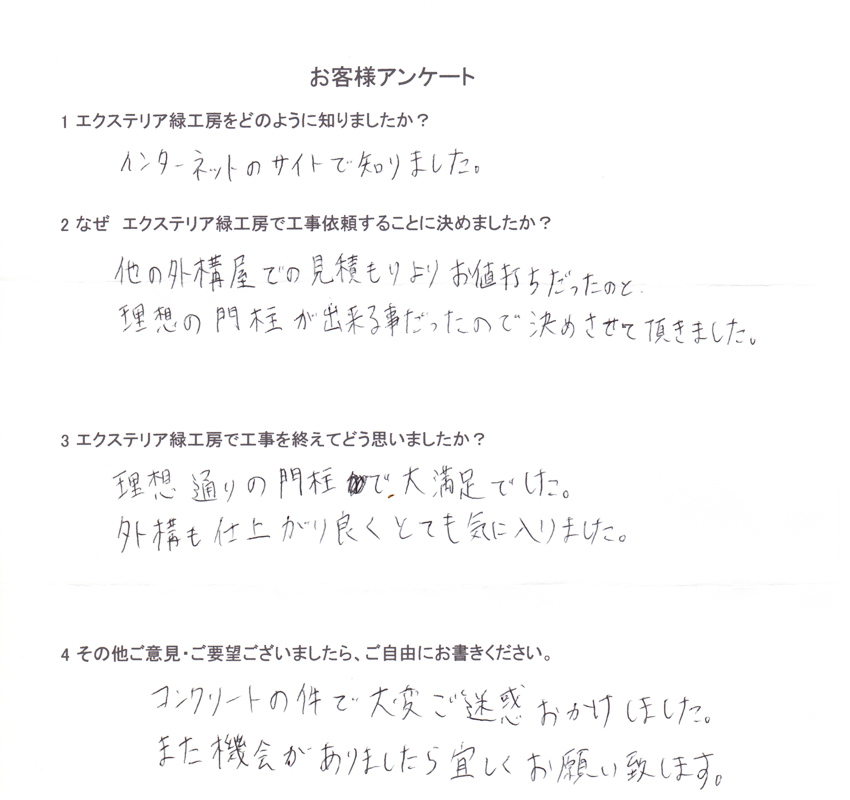 お客様アンケート
1 エクステリア緑工房をどのように知りましたか？
インターネットのサイトで知りました。
2 なぜ エクステリア緑工房で工事依頼することに決めましたか？
他の外構屋での見積もりよりお値打ちだったのと
理想の門柱が出来る事だったので決めさせて頂きました。
3 エクステリア緑工房で工事を終えてどう思いましたか？
理想通りの門柱で、大満足でした。
外構も仕上がり良くとても気に入りました。
4 その他ご意見・ご要望ございましたら、ご自由にお書きください。
コンクリートの件で大変ご迷惑おかけしました。
また機会がありましたら宜しくお願い致します。